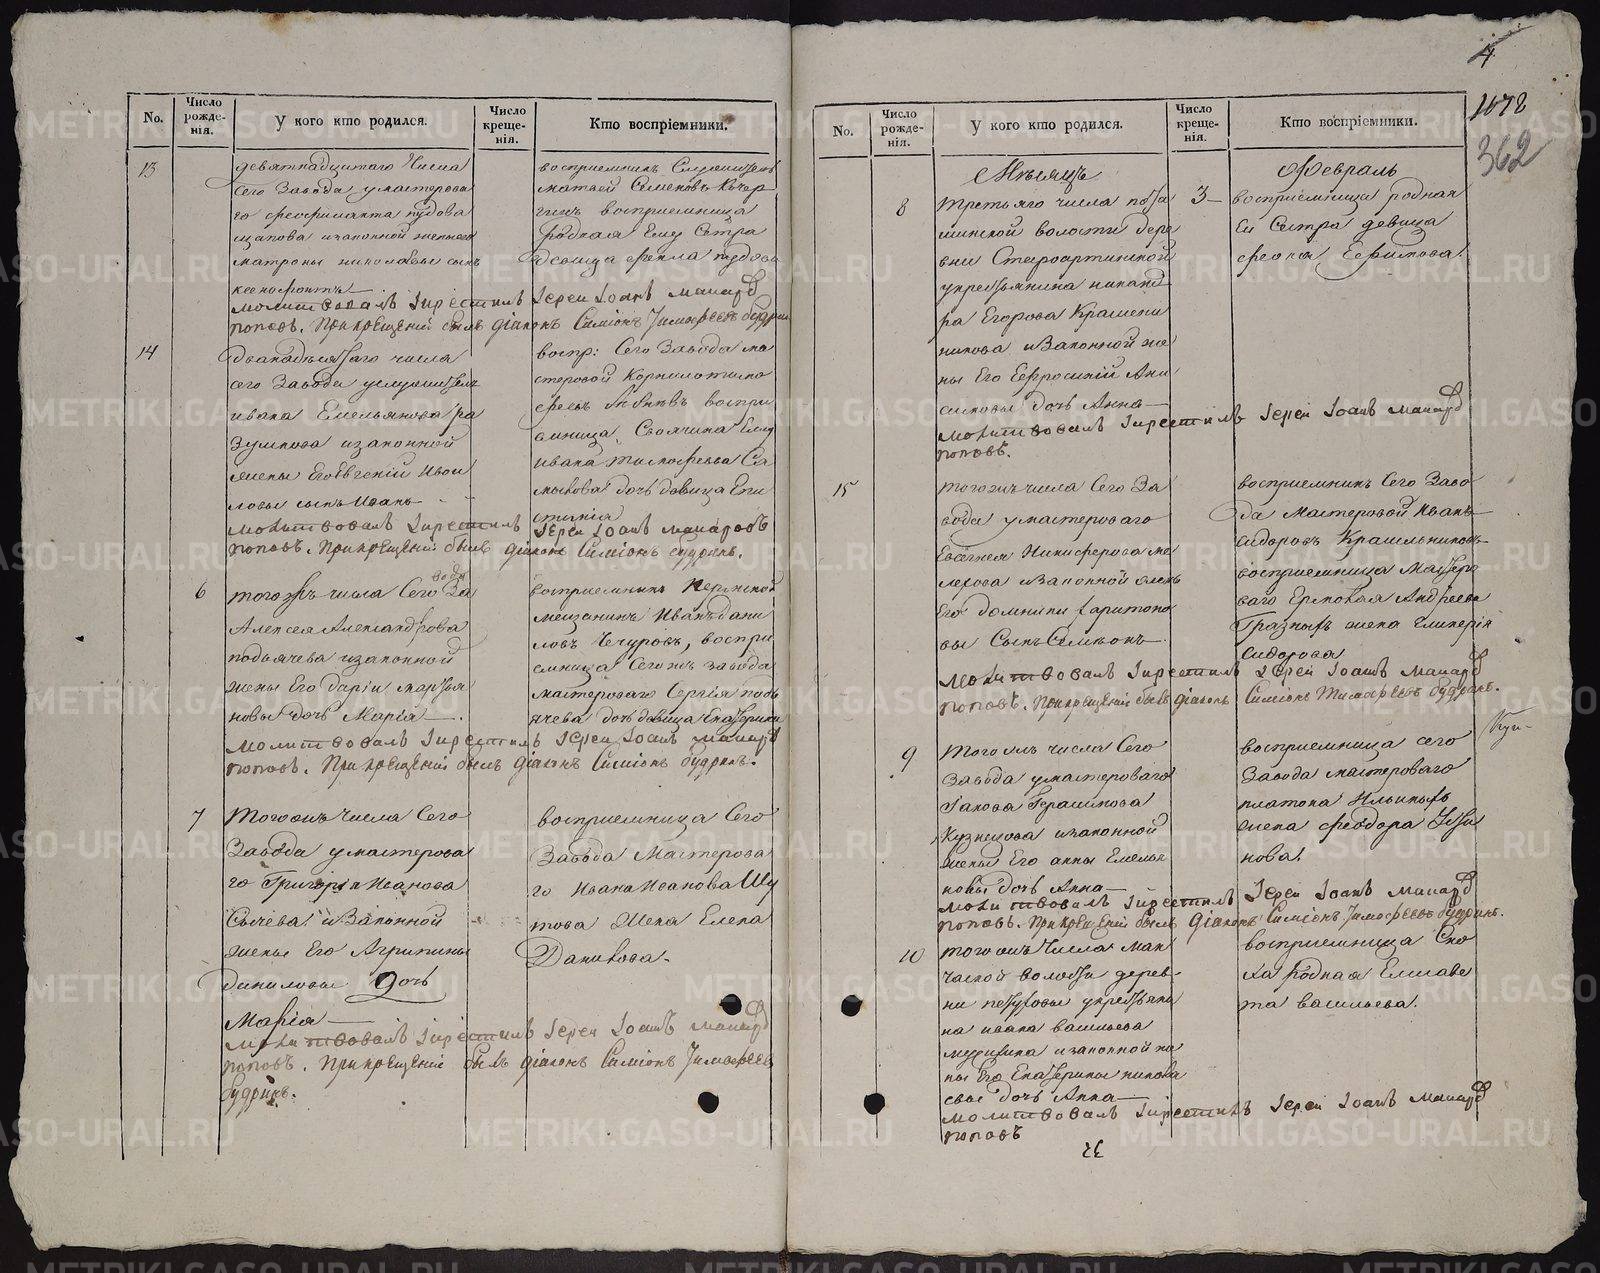 4
1078
362
No.
Число рожде-нія.
У кого кто родился.
Число креще-нія.
Кто воспріемники.
13
девятнадцатаго Числа
сего Завода у мастерова
го Феофилакта
и законной жены его
Матроны сынъ
Ксенофонтъ
восприемникъ Служитель
Матвей Семеновъ
восприемница
родная Ему Сестра
девица Фекла
молитвовалъ и крестилъ Іереи Іоанъ Макаровъ
поповъ. При крещеніи былъ діаконъ Симіонъ Тимофеевъ будринъ
14
двадцатаго числа
сего Завода у служителя
ивана Емельянова ра
зумкова и законной
жены Его Евгеніи
сынъ Иванъ
воспр: Сего Завода ма
стеровой
воспри
емница, Своячина Ему
ивана Тимофеева Са
дочь девица Епи
стимія
молитвовалъ и крестилъ Іереи Іоанъ Макаровъ
поповъ. При крещеніи былъ діаконъ Симіонъ будринъ.
6
тогожъ числа Сего За
вода
Алексея Александрова
подъячева и законной
жены Его Даріи Мартья
новы дочь Марія
восприемникъ
мещанинъ Иванъ Дани
ловъ Чечуровъ, воспри
емница Сегожъ завода
мастероваго Сергія подъ
ячева дочь девица Екатерина
молитвовалъ и крестилъ Іереи Іоанъ Макаровъ
поповъ. При крещеніи былъ діаконъ Симіонъ будринъ.
7
Тогожъ Числа Сего
Завода у мастерова
го Григорія Иванова
Сычева и Законной
жены Его Агрипины
Даниловы Дочь
Марія
восприемница Сего
Завода Мастерова
го Ивана Иванова Шу
това Жена Елена
Данилова.
молитвовалъ и крестилъ Іереи Іоанъ Макаровъ
поповъ. При крещеніи былъ діаконъ Симіонъ Тимофеевъ
будринъ.
No.
Число рожде-нія.
У кого кто родился.
Число креще-нія.
Кто воспріемники.
Мѣсяцъ
Февраль
8
третьяго числа
волости дере
вни Староартинской
у крестьянина никанд
ра Егорова Крашени
никова и Законной же
ны Его Ефросиніи Ани
симовы дочь Анна
3
восприемница родная
Ей Сестра девица
Фекла Ефимова.
молитвовалъ и крестилъ Іереи Іоанъ Макаровъ
поповъ.
15
тогожъ числа Сего За
вода у мастероваго
Евсегнея Никифорова
и законной жены
Его Домники Харитоно
вы Сынъ Семіонъ
восприемникъ Сего Заво
да Мастеровой Иванъ
Сидоровъ Крашельниковъ
восприемница Мастеро
ваго Ермолая Андреева
Грязныхъ жена Гликерія
Сидорова
молитвовалъ и крестилъ Іереи Іоанъ Макаровъ
поповъ. При крещеніи былъ діаконъ Симіонъ Тимофеевъ будринъ.
9
Тогожъ числа Сего
завода у мастероваго
Іакова Герасимова
Кузнецова и законной
жены Его анны Емелья
новы дочь Анна
восприемница сего
Завода мастероваго
платона Ильиныхъ
жена феодора Усти
нова.
молитвовалъ и крестилъ Іереи Іоанъ Макаровъ
поповъ. При крещеніи былъ діаконъ Симіонъ Тимофеевъ будринъ.
10
тогожъ Числа Ман
чажской волости дерев
ни петуховы у крестьяни
на ивана Васильева
и законной же
ны Его Екатерины
дочь Анна
восприемница Сно
ха родная Елисаве
та васильева.
молитвовалъ и крестилъ Іереи Іоанъ Макаровъ
поповъ
METRIKI.GASO-URAL.RU